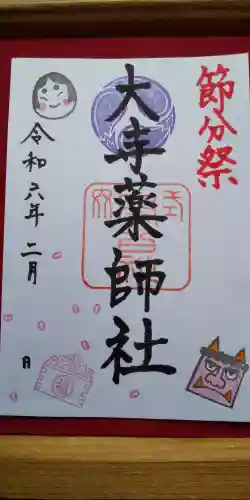 節分祭
大寺薬師社
令和六年二月
日